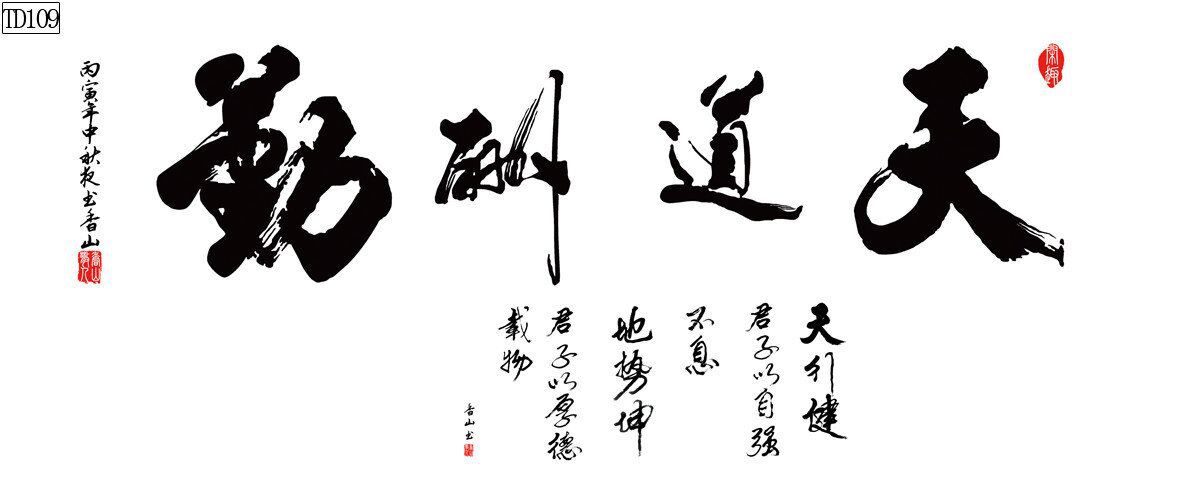 TD109
天道酬勤
天行健
君子以自强
不息
地势坤
君子以厚德
载物
香山书
丙寅年中秋夜书香山